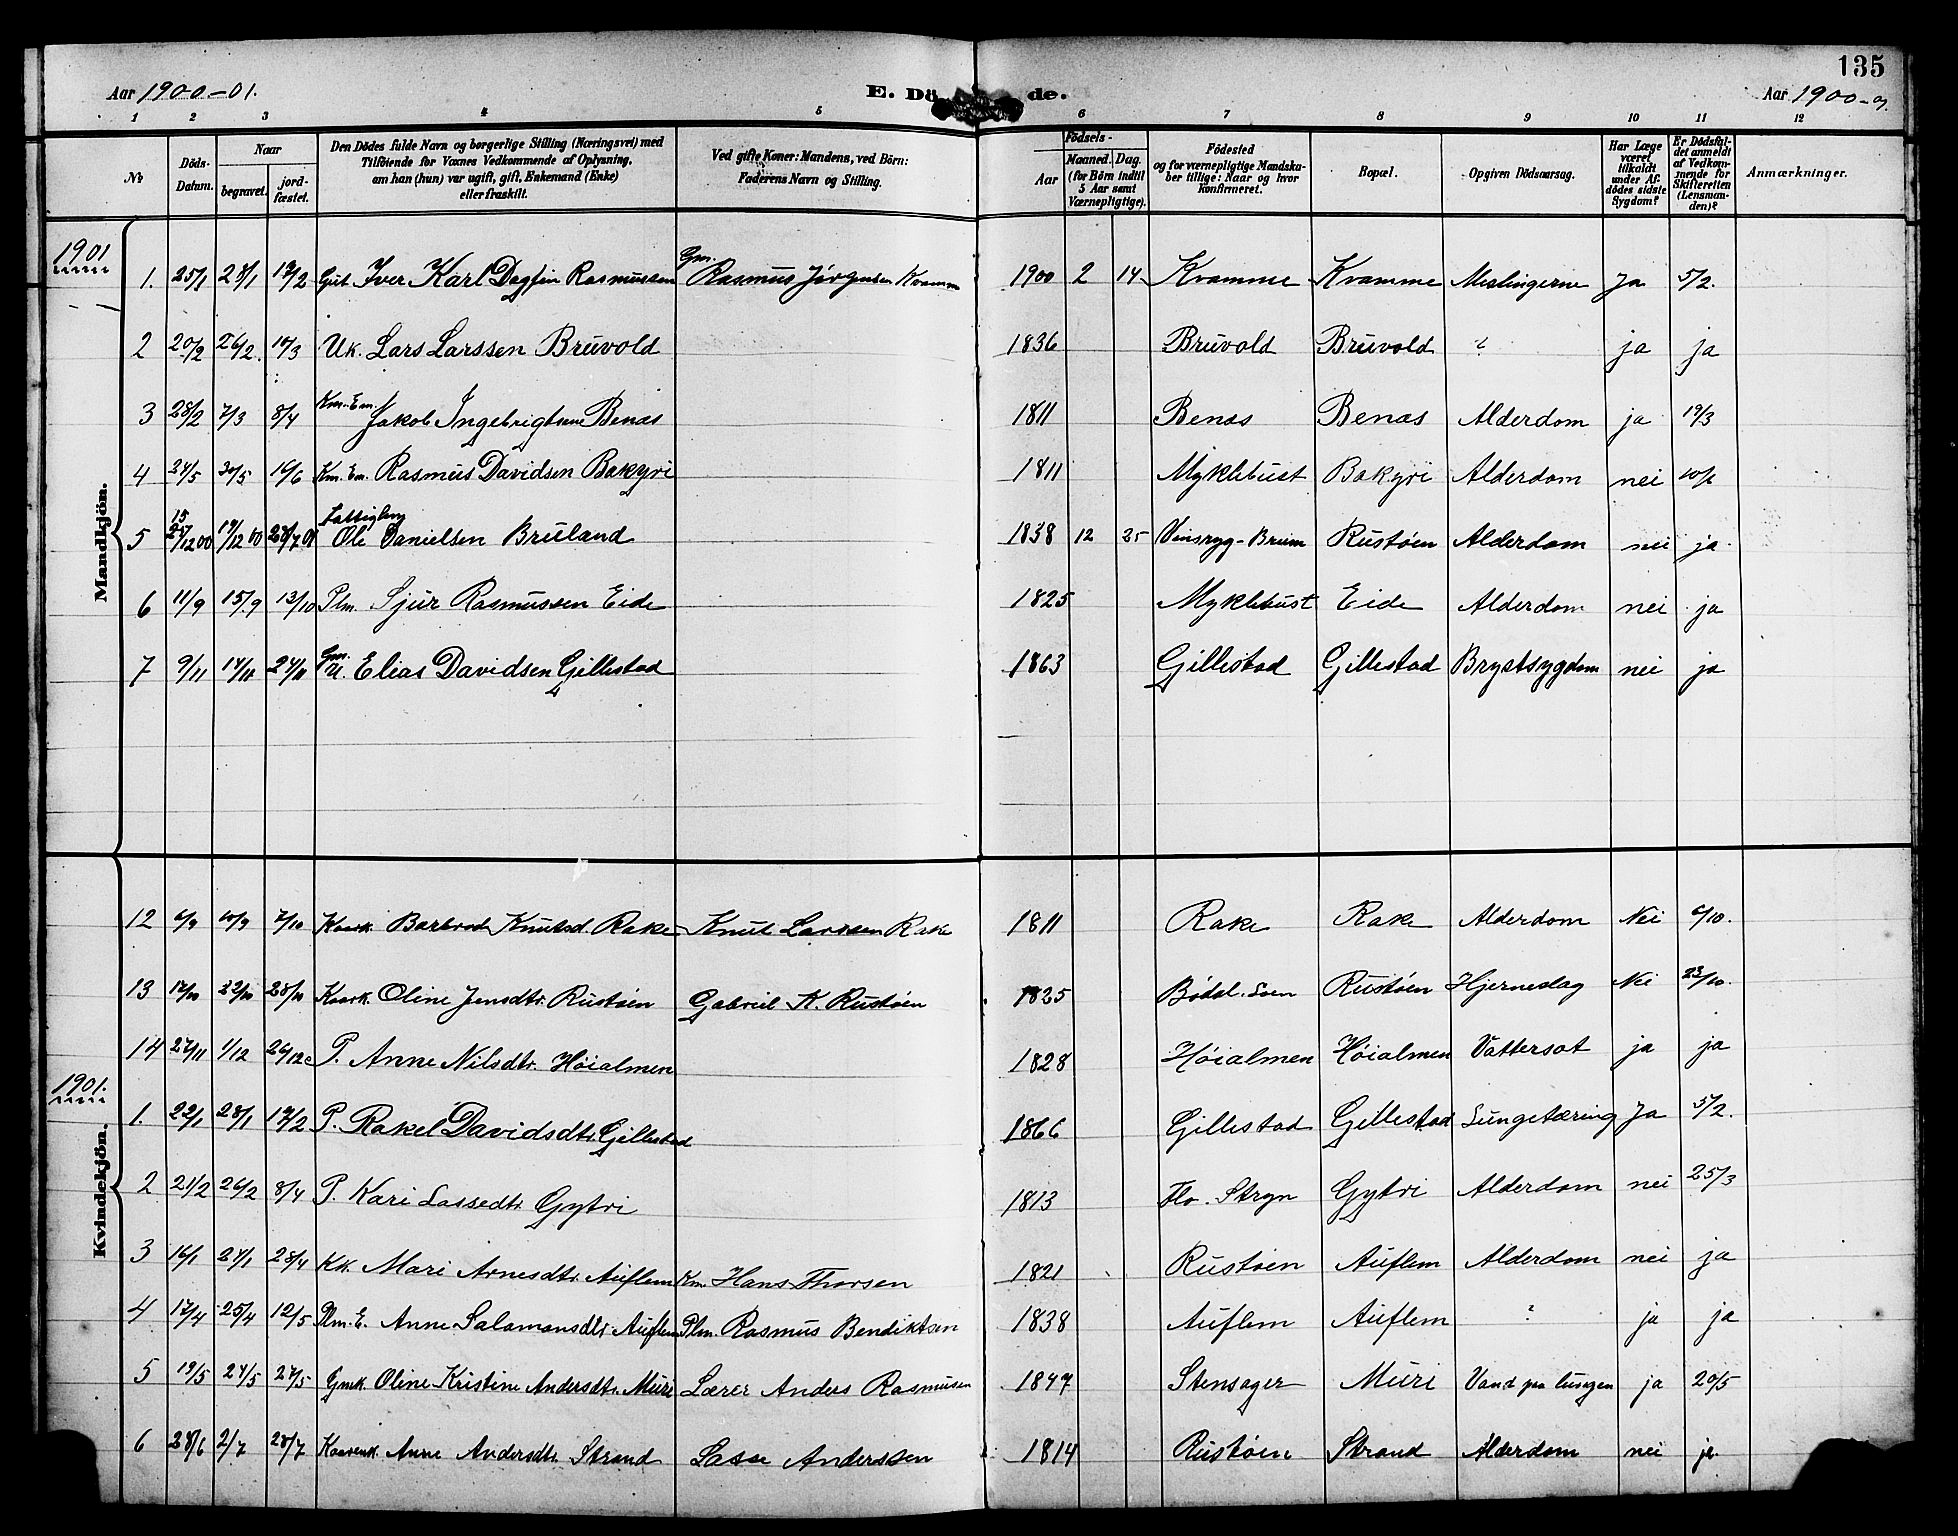 135
Aar 1900-01. E. Dö de. Aar 1900-01.
1 2 3 4 5 6 7 8 9 10 11 12
No
Döds-Datum.
Naar begravet. jord-fæstet.
Den Dödes fulde Navn og borgerlige Stilling (Næringsvei) med
Tilföiende for Voxnes Vedkommende af Oplysning,
om han (hun) var ugift, gift, Enkemand (Enke)
eller fraskilt.
Ved gifte Koner: Mandens, ved Börn:
Faderens Navn og Stilling.
Födsels-
Aar Maaned. Dag.
(for Börn indtil
5 Aar samt
Værnepligtige).
Födested
og for værnepligtige Mandska-
ber tillige: Naar og hvor
konfirmeret.
Bopæl.
Opgiven Dödsaarsag.
Har Læge
været
tilkaldt
under Af-
dödes sidste
Sygdom?
Er Dödsfal-
det anmeldt
af Vedkom-
mende for
Skifteretten
(Lensman-
den)?
Anmærkninger.
Mandkjön.
1901
1. 25/1 28/1 17/2 Gut Iver Karl Dagfin Rasmussen Gm. Rasmus Jörgensen Kvamme 1900 2 14 Kvamme Kvamme Meslingerne Ja 5/2.
2 20/2 26/2. 10/3 Uk. Lars Larssen Bruvold 1836 Bruvold Bruvold ? ja ja
3 28/2 7/3 8/4 Km. Em. Jakob Ingebrigtsen Benas 1811 Benas Benas Alderdom ja 19/3
4 24/5 30/5 16/6 Km. Em. Rasmus Davidsen Bakyri 1811 Myklebust Bakyri Alderdom nei 10/6
5 15/12 00 19/12 00 28/7 01 Ole Danielsen Bruland 1838 12 25 Vinsryg-Breim Rustöen Alderdom nei ja
6 11/9 15/9 13/10 Plm. Sjur Rasmussen Eide 1825 Myklebust Eide Alderdom nei ja
7 9/11 14/11 24/11 Gm. U. Elias Davidsen Gillestad 1863 Gillestad Gillestad Brystsygdom nei ja
Kvindekjön.
12 6/9 10/9 7/10 Kaark. Barbro Knutsd. Rake Knut Larssen Rake 1811 Rake Rake Alderdom Nei 6/10.
13 17/10 22/10 28/10 Kaark. Oline Jensdtr. Rustöen Gabriel K. Rustöen 1825 Bödal. Loen Rustöen Hjerneslag Nei 23/10.
14 27/11 1/12 26/12 P. Anne Nilsdtr. Höialmen 1828 Höialmen Höialmen Vattersot ja ja
1901.
1. 22/1 28/1 17/2 P. Rakel Davidsdtr. Gillestad 1866 Gillestad Gillestad Lungetæring Ja 5/2.
2 21/2 26/2 8/4 P. Kari Lassedtr Gytri 1813 Flo. Stryn Gytri Alderdom nei 25/3
3 16/1 24/1 28/4 Kk. Mari Arnesdtr. Auflem Km. Hans Thorsen 1821 Rustöen Auflem Alderdom nei ja
4 17/4 25/4 12/5 Plm. E. Anne Salamonsdtr Auflem Plm. Rasmus Bendiktsen 1838 Auflem Auflem ? ja ja
5 19/5 24/5 27/5 Gmk. Oline Kristine Andersdtr. Muri Lærer Anders Rasmusen 1847 Stensager Muri Vand paa lungen ja 20/5
6 28/6 2/7 28/7 Kaarenk. Anne Andersdtr. Strand Lasse Anderssen 1814 Rustöen Strand Alderdom nei ja